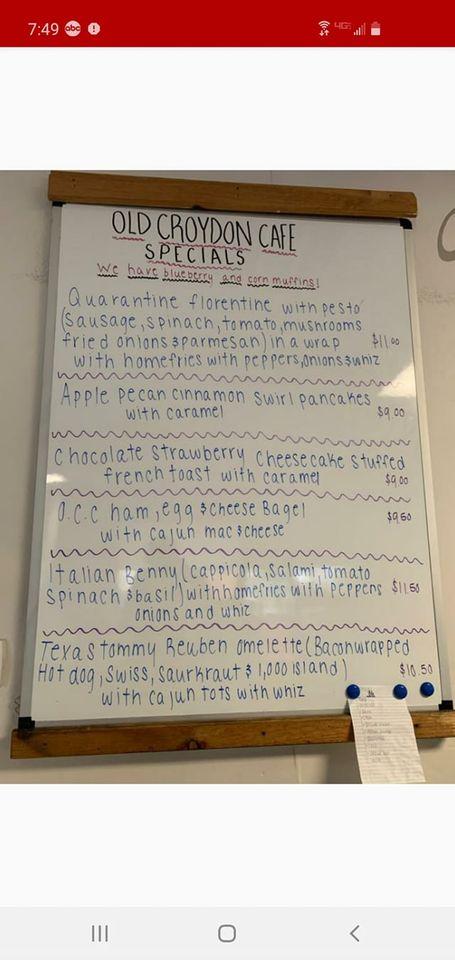 7:49 abc
4GE
OLD CROYDON CAFE
SPECIALS
We have blueberry and corn muffins!
Quarantine florentine with pesto
(sausage, spinach, tomato, mushrooms
fried onions & parmesan) in a wrap $11.00
with homefries with peppers, onions & whiz
Apple pecan cinnamon swirl pancakes
with caramel $9.00
Chocolate strawberry cheesecake stuffed
french toast with caramel $9.00
O.C.C ham, egg & cheese Bagel $9.50
with cajun mac & cheese
Italian Benny (cappicola, salami, tomato
spinach & basil) with homefries with peppers $11.50
onions and whiz
Texas tommy Reuben omelette (Bacon wrapped
Hot dog, Swiss, Saurkraut & 1,000 island) $10.50
with cajun tots with whiz